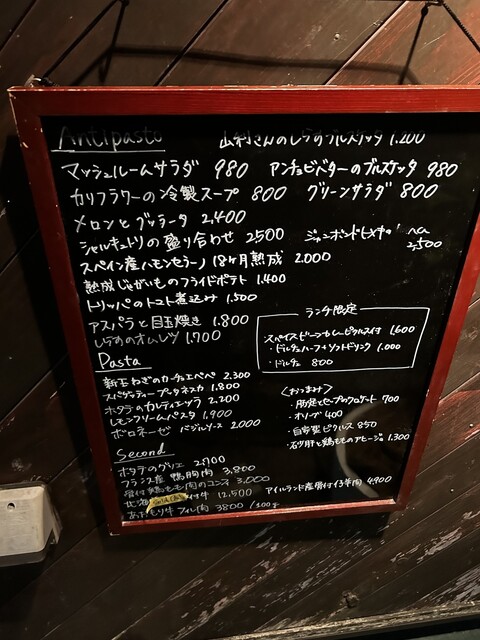 Antipasto
山利さんのしらすブルスケッタ 1,200
マッシュルームサラダ 980 アンチョビバターのブルスケッタ 980
カリフラワーの冷製スープ 800 グリーンサラダ 800
メロンとブッラータ 2,400
シャルキュトリの盛り合わせ 2500
2,500
スペイン産ハモンセラーノ 18ヶ月熟成 2,000
熟成じゃがいものフライドポテト 1,400
トリッパのトマト煮込み 1,500
アスパラと目玉焼き 1,800
しらすのオムレツ 1,700
ランチ限定
スパイスビーフカレーピクルス付 1600
・ドルチェハーフ+ソフトドリンク 1,000
・ドルチェ 800
Pasta
新玉ねぎのカーチョエペペ 2,300
スパゲッティープッタネスカ 1,800
ホタテのカルディエッラ 2,200
レモンクリームパスタ 1,900
ボロネーゼ バジルソース 2,000
<おつまみ>
700
・オリーブ 400
・自家製ピクルス 850
・砂肝と鶏もものアヒージョ 1,300
Second
ホタテのグリエ 2,700
フランス産 鴨胸肉 3,800
骨付鶏もも肉のコンフィ 3,000
付牛 12,500 アイルランド産骨付仔羊肉 4900
牛フィレ肉 3800 /100g